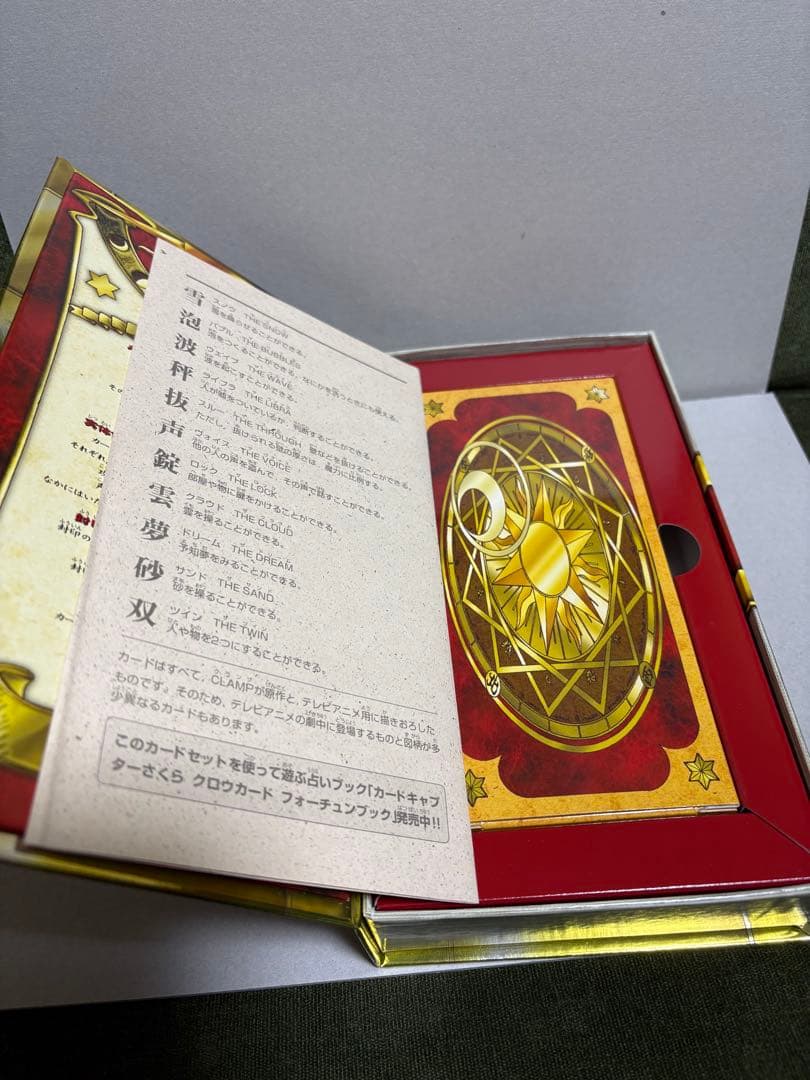 雪 スノウ THE SNOW
雪を降らせることができる。
泡 バブル THE BUBBLES
泡をつくることができる。なにかを洗うときにも使える。
波 ウェイブ THE WAVE
波を起こすことができる。
秤 ライブラ THE LIBRA
人が嘘をついているか、判断することができる。
抜 スルー THE THROUGH 壁などを抜けることができる。
ただし、抜けられる壁の厚さは、魔力に比例する。
声 ヴォイス THE VOICE
他の人の声を盗んで、その声で話すことができる。
錠 ロック THE LOCK
部屋や物に鍵をかけることができる。
雲 クラウド THE CLOUD
雲を操ることができる。
夢 ドリーム THE DREAM
予知夢をみることができる。
砂 サンド THE SAND
砂を操ることができる。
双 ツイン THE TWIN
人や物を2つにすることができる。
カードはすべて、CLAMPが原作と、テレビアニメ用に描きおろした
ものです。そのため、テレビアニメの劇中に登場するものと図柄が多
少異なるカードもあります。
このカードセットを使って遊ぶ占いブック「カードキャプ
ターさくら クロウカード フォーチュンブック」発売中!!
その
カー
それぞれ
なかにはいた
封印の
カー